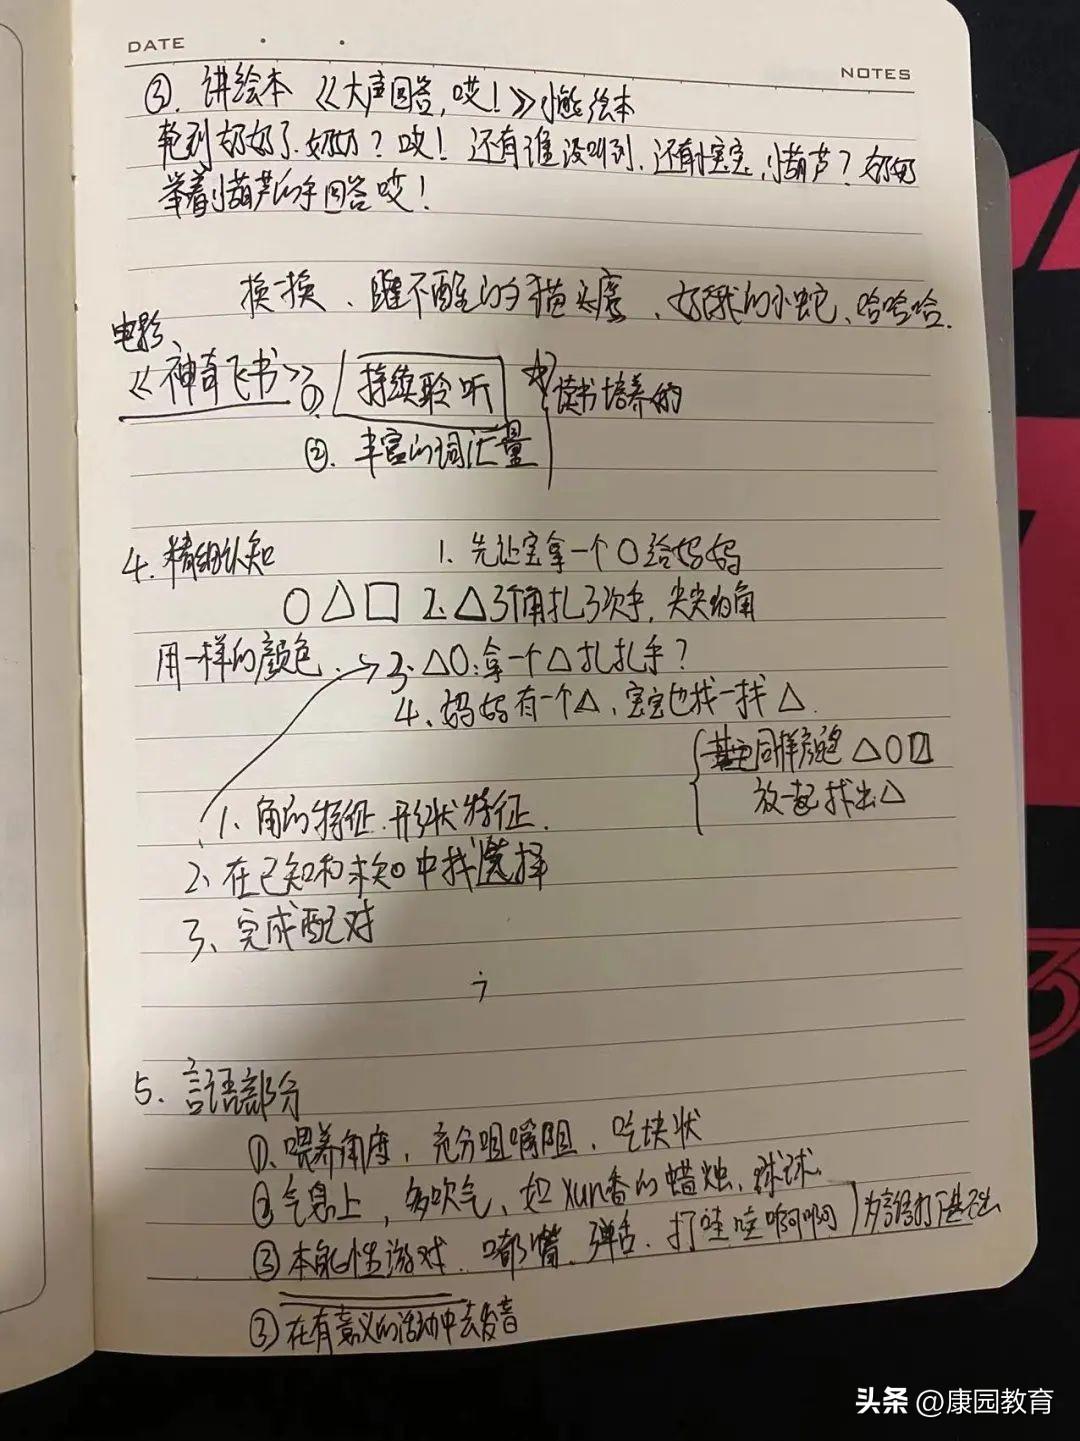 DATE
NOTES
③. 讲绘本《大声回答,哎!》小熊绘本
轮到奶奶了.奶奶?哎!还有谁没叫到.还有宝宝,小葫芦?奶奶
举着小葫芦的手回答哎!
换一换、睡不醒的猫头鹰、好饿的小蛇、哈哈哈.
电影、
《神奇飞书》①持续聆听 ☆读书培养的
②. 丰富的词汇量
4. 精细认知 1. 先让宝拿一个○给妈妈
○△□ 2. △3个角扎3次手,尖尖的角
用一样的颜色. 3. △○:拿一个△扎扎手?
4、妈妈有一个△、宝宝也找一找△.
同样颜色△○□
放一起找出△
1、角的特征.形状特征.
2、在已知和未知中找选择
3、完成配对
5. 言语部分
①、喂养角度,充分咀嚼,吃块状
②气息上,多吹气、如xun香的蜡烛、球球.
③本能性游戏.嘟嘴、弹舌.打哇哇啊啊 为言语打下基础
③在有意义的活动中去发音
头条 @康园教育